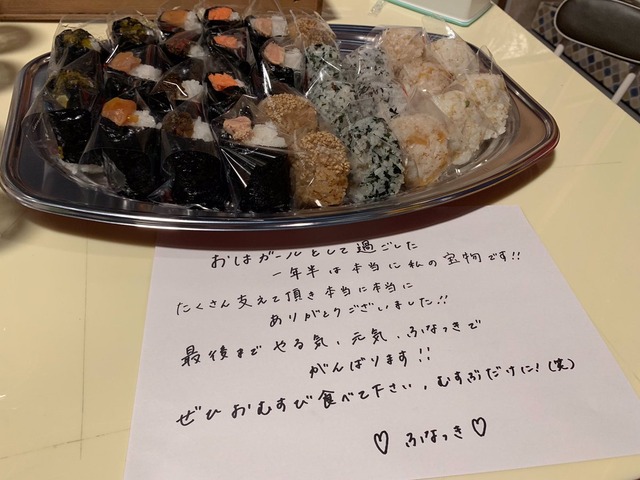 おはガールとして過ごした
一年半は本当に私の宝物です!!
たくさん支えて頂き本当に本当に
ありがとうございました!!
最後まで やる気、元気、ふなっきで
がんばります!!
ぜひ おむすび食べて下さい、むすぶだけに!(笑)
♡ ふなっき ♡